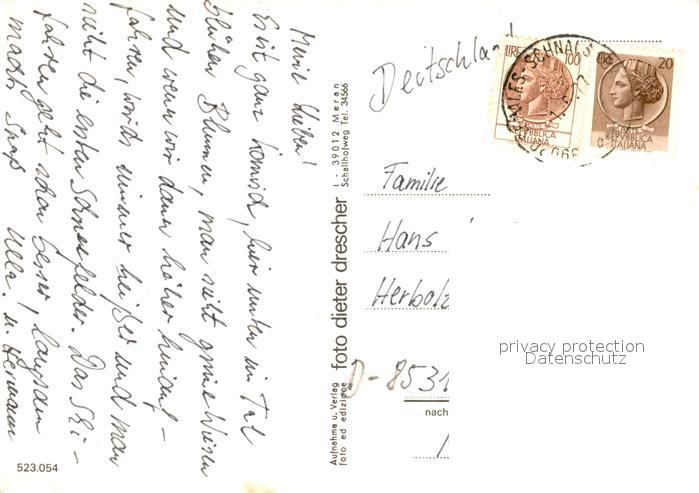 Meine Lieben!
Es ist ganz komisch, hier unten im Tal
blühen Blumen, man sieht grüne Wiesen
und wenn wir dann höher hinauf-
fahren, wird's immer heißer und man
sieht die ersten Schneefelder. Das Ski-
fahren geht schon besser, langsam
macht's Spaß Ulla. u. Hermann
523.054
Aufnahme u. Verlag
foto ed edizione
foto dieter drescher
I - 39012 Meran
Schallhofweg Tel. 34566
Deutschland
LIRE 100
REPVBBLICA
ITALIANA
LIRE 20
REPVBBLICA
ITALIANA
SCHNALS
Familie
Hans
Herbolz
D-8531
nach
privacy protection
Datenschutz